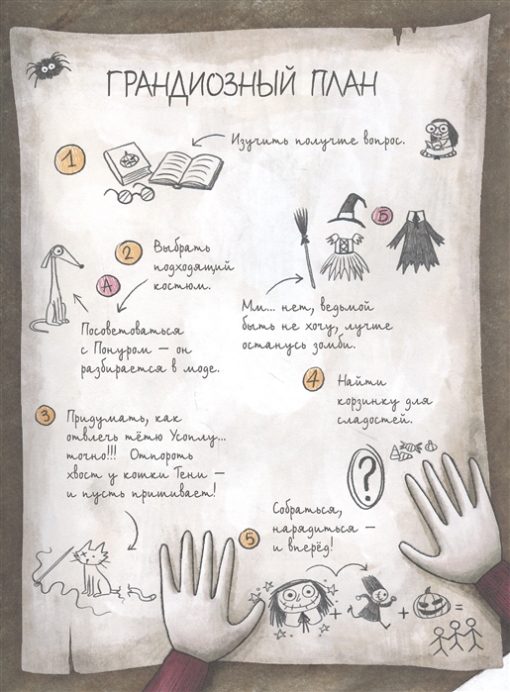 ГРАНДИОЗНЫЙ ПЛАН
1
Изучить получше вопрос.
2
Выбрать
подходящий
костюм.
А
Посоветоваться
с Понуром – он
разбирается в моде.
Б
Мм... нет, ведьмой
быть не хочу, лучше
останусь зомби.
3
Придумать, как
отвлечь тётю Усоплу...
точно!!! Отпороть
хвост у кошки Тени –
и пусть пришивает!
4
Найти
корзинку для
сладостей.
?
5
Собраться,
нарядиться –
и вперёд!
+ + =